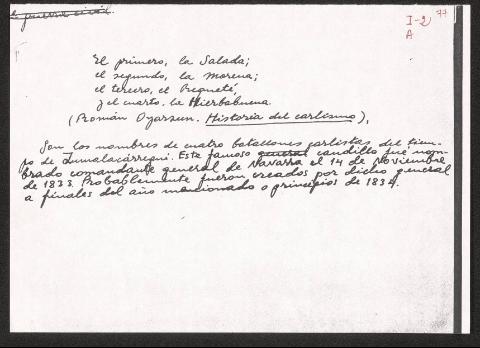 guerra civil.
I-2 77
A
El primero, la Salada;
el segundo, la Morena;
el tercero, el Requeté,
y el cuarto, la Hierbabuena.
(Román Oyarzun. Historia del carlismo),
Son los nombres de cuatro batallones carlistas del tiem-
po de Zumalacárregui. Este famoso general caudillo fué nom-
brado comandante general de Navarra el 14 de Noviembre
de 1833. Probablemente fueron creados por dicho general
a finales del año mencionado o principios de 1834.